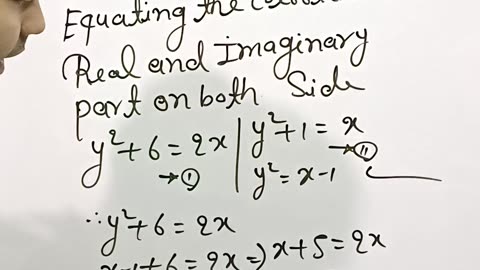 Equating the
Real and Imaginary
part on both Side
y²+6=2x | y²+1 = x
→① →⑪
y² = x-1
∴ y²+6 = 2x
x-1+6=2x ⇒ x+5=2x